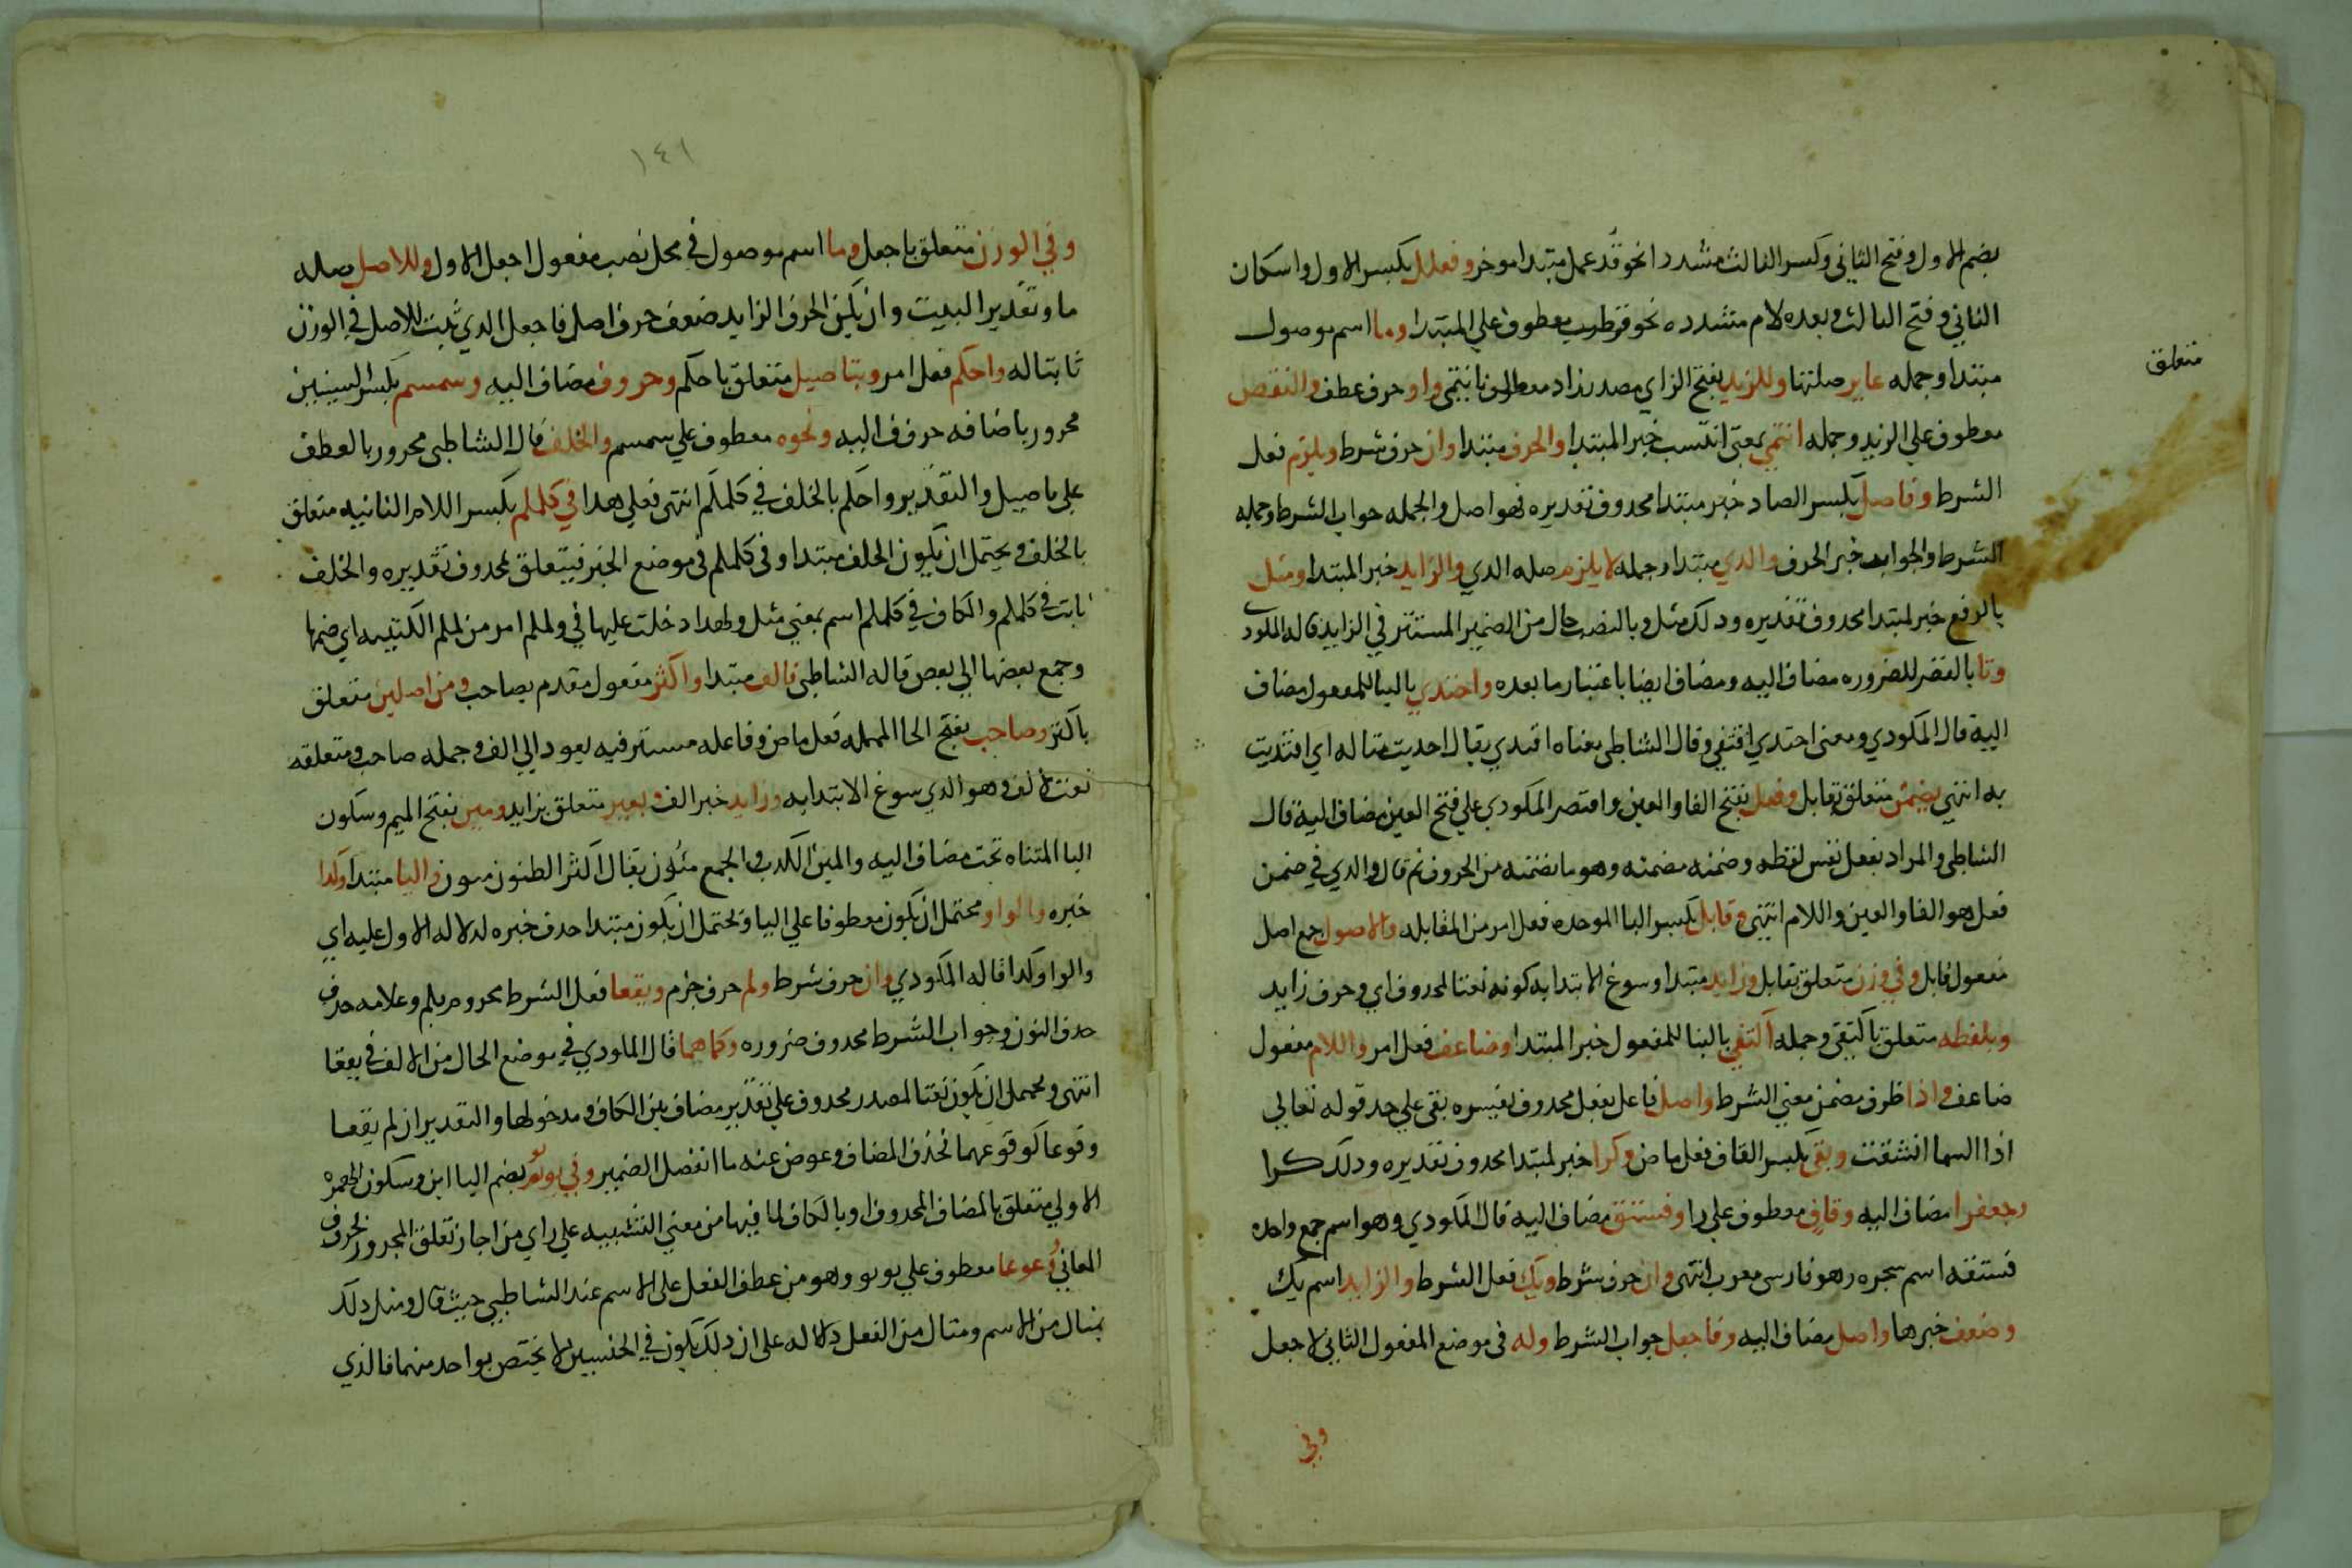 بضم الاول وفتح الثاني وكسر الثالث مشددا نحو قذعمل مبتدا موخر وفعلل بكسر الاول واسكان
الثاني وفتح الثالث وبعده لام مشدده نحو قرطب معطوف علي المبتدا وما اسم موصول
مبتدا وجمله غاير صلتها وللزيد بفتح الزاي مصدر زاد متعلق بانتمي واو حرف عطف والنقص
متعلق
معطوف علي الزيد وجمله انتمي بمعني انتسب خبر المبتدا والحرف مبتدا وان حرف شرط ويلزم فعل
الشرط وفاصل بكسر الصاد خبر مبتدا محذوف تقديره فهو اصل والجمله جواب الشرط وجمله
الشرط والجواب خبر الحرف والذي مبتدا وجمله لا يلزم صله الذي والزايد خبر المبتدا ومثل
بالرفع خبر لمبتدا محذوف تقديره وذلك مثل وبالنصب حال من الضمير المستتر في الزايد قاله المكودي
وتا بالقصر للضروره مضاف اليه ومضاف ايضا باعتبار ما بعده واحتذي بالبنا للمفعول مضاف
اليه قال المكودي ومعني احتذي اقتفي وقال الشاطبي معناه اقتدي يقال احتذيت مثاله اي اقتديت
به انتهي بضمن متعلق بقابل وفعل بفتح الفا والعين واقتصر المكودي علي فتح العين مضاف اليه قال
الشاطبي والمراد بفعل نفس لفظه وضمنه مضمنه وهو ما تضمنه من الحروف ثم قال والذي في ضمن
فعل هو الفا والعين واللام انتهي وقابل بكسر البا الموحده فعل امر من المقابله والاصول جمع اصل
مفعول قابل وفي وزن متعلق بقابل وزايد مبتدا وسوغ الابتدا به كونه نعتا لمحذوف اي وحرف زايد
وبلفظه متعلق باكتفي وجمله اكتفي بالبنا للمفعول خبر المبتدا وضاعف فعل امر واللام مفعول
ضاعف واذا ظرف مضمن معني الشرط واصل فاعل بفعل محذوف يفسره بقي علي حد قوله تعالي
اذا السما انشقت وبقي بكسر القاف فعل ماض وكرا خبر لمبتدا محذوف تقديره وذلك كرا
وجعفر ا مضاف اليه وقاف معطوف علي را وفستق مضاف اليه قال المكودي وهو اسم جمع واحده
فستقه اسم شجره وهو فارسي معرب انتهي وان حرف شرط ويك فعل الشرط والزايد اسم يك
وضعف خبرها واصل مضاف اليه وفاجعل جواب الشرط وله في موضع المفعول الثاني لاجعل
وفي
١٤١
وفي الوزن متعلق باجعل وما اسم موصول في محل نصب مفعول اجعل الاول وللاصل صله
ما وتقدير البيت وان يكن الحرف الزايد ضعف حرف اصل فاجعل الذي ثبت للاصل في الوزن
ثابتا له واحكم فعل امر وبتاصيل متعلق باحكم وحروف مضاف اليه وسمسم بكسر السينين
مجرور باضافه حروف اليه ونحوه معطوف علي سمسم والخلف قال الشاطبي مجرور بالعطف
علي تاصيل والتقدير واحكم بالخلف في كلملم انتهي فعلي هذا في كلملم بكسر اللام الثانيه متعلق
بالخلف ويحتمل ان يكون الخلف مبتدا وفي كلملم في موضع الخبر فيتعلق بمحذوف تقديره والخلف
ثابت في كلملم والكاف في كلملم اسم بمعني مثل ولهذا دخلت عليها في ولملم امر من لملم الكتيبه اي ضمها
وجمع بعضها الي بعض قاله الشاطبي فالف مبتدا واكثر مفعول مقدم بصاحب ومن اصلين متعلق
باكثر وصاحب بفتح الحا المهمله فعل ماض وفاعله مستتر فيه يعود الي الف وجمله صاحب ومتعلقه
نعت لالف وهو الذي سوغ الابتدا به وزايد خبر الف وبغير متعلق بزايد ومين بفتح الميم وسكون
اليا المثناه تحت مضاف اليه والمين الكذب والجمع ميون يقال اكثر الظنون ميون واليا مبتدا وكذا
خبره والواو محتمل ان يكون معطوفا علي اليا ويحتمل ان يكون مبتدا حذف خبره لدلاله الاول عليه اي
والواو كذا قاله المكودي وان حرف شرط ولم حرف جزم ويقعا فعل الشرط مجروم بلم وعلامه جزمه
حذف النون وجواب الشرط محذوف ضروره وكما هما قال المكودي في موضع الحال من الالف في يقعا
انتهي ويحتمل ان يكون نعتا لمصدر محذوف علي تقدير مضاف بين الكاف ومدخولها والتقدير ان لم يقعا
وقوعا كوقوعهما فحذف المضاف وعوض عنه ما انفصل الضمير وفي يويو بضم اليا ابن وسكون الهمزه
الاولي متعلق بالمضاف المحذوف او بالكاف لما فيها من معني التشبيه علي راي من اجاز تعلق المجرور بحروف
المعاني ووعوعا معطوف علي يويو وهو من عطف الفعل علي الاسم عند الشاطبي حيث قال ومثل ذلك
بمثال من الاسم ومثال من الفعل دلاله علي ان ذلك يكون في الجنسين لا يختص بواحد منهما فالذي